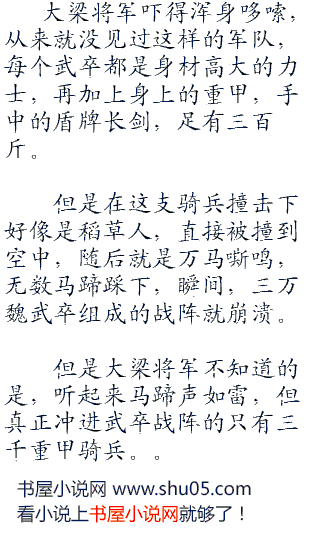 大梁将军吓得浑身哆嗦，
从来就没见过这样的军队，
每个武卒都是身材高大的力
士，再加上身上的重甲，手
中的盾牌长剑，足有三百
斤。
但是在这支骑兵撞击下
好像是稻草人，直接被撞到
空中，随后就是万马嘶鸣，
无数马蹄踩下，瞬间，三万
魏武卒组成的战阵就崩溃。
但是大梁将军不知道的
是，听起来马蹄声如雷，但
真正冲进武卒战阵的只有三
千重甲骑兵。。
书屋小说网 www.shu05.com
看小说上书屋小说网就够了！